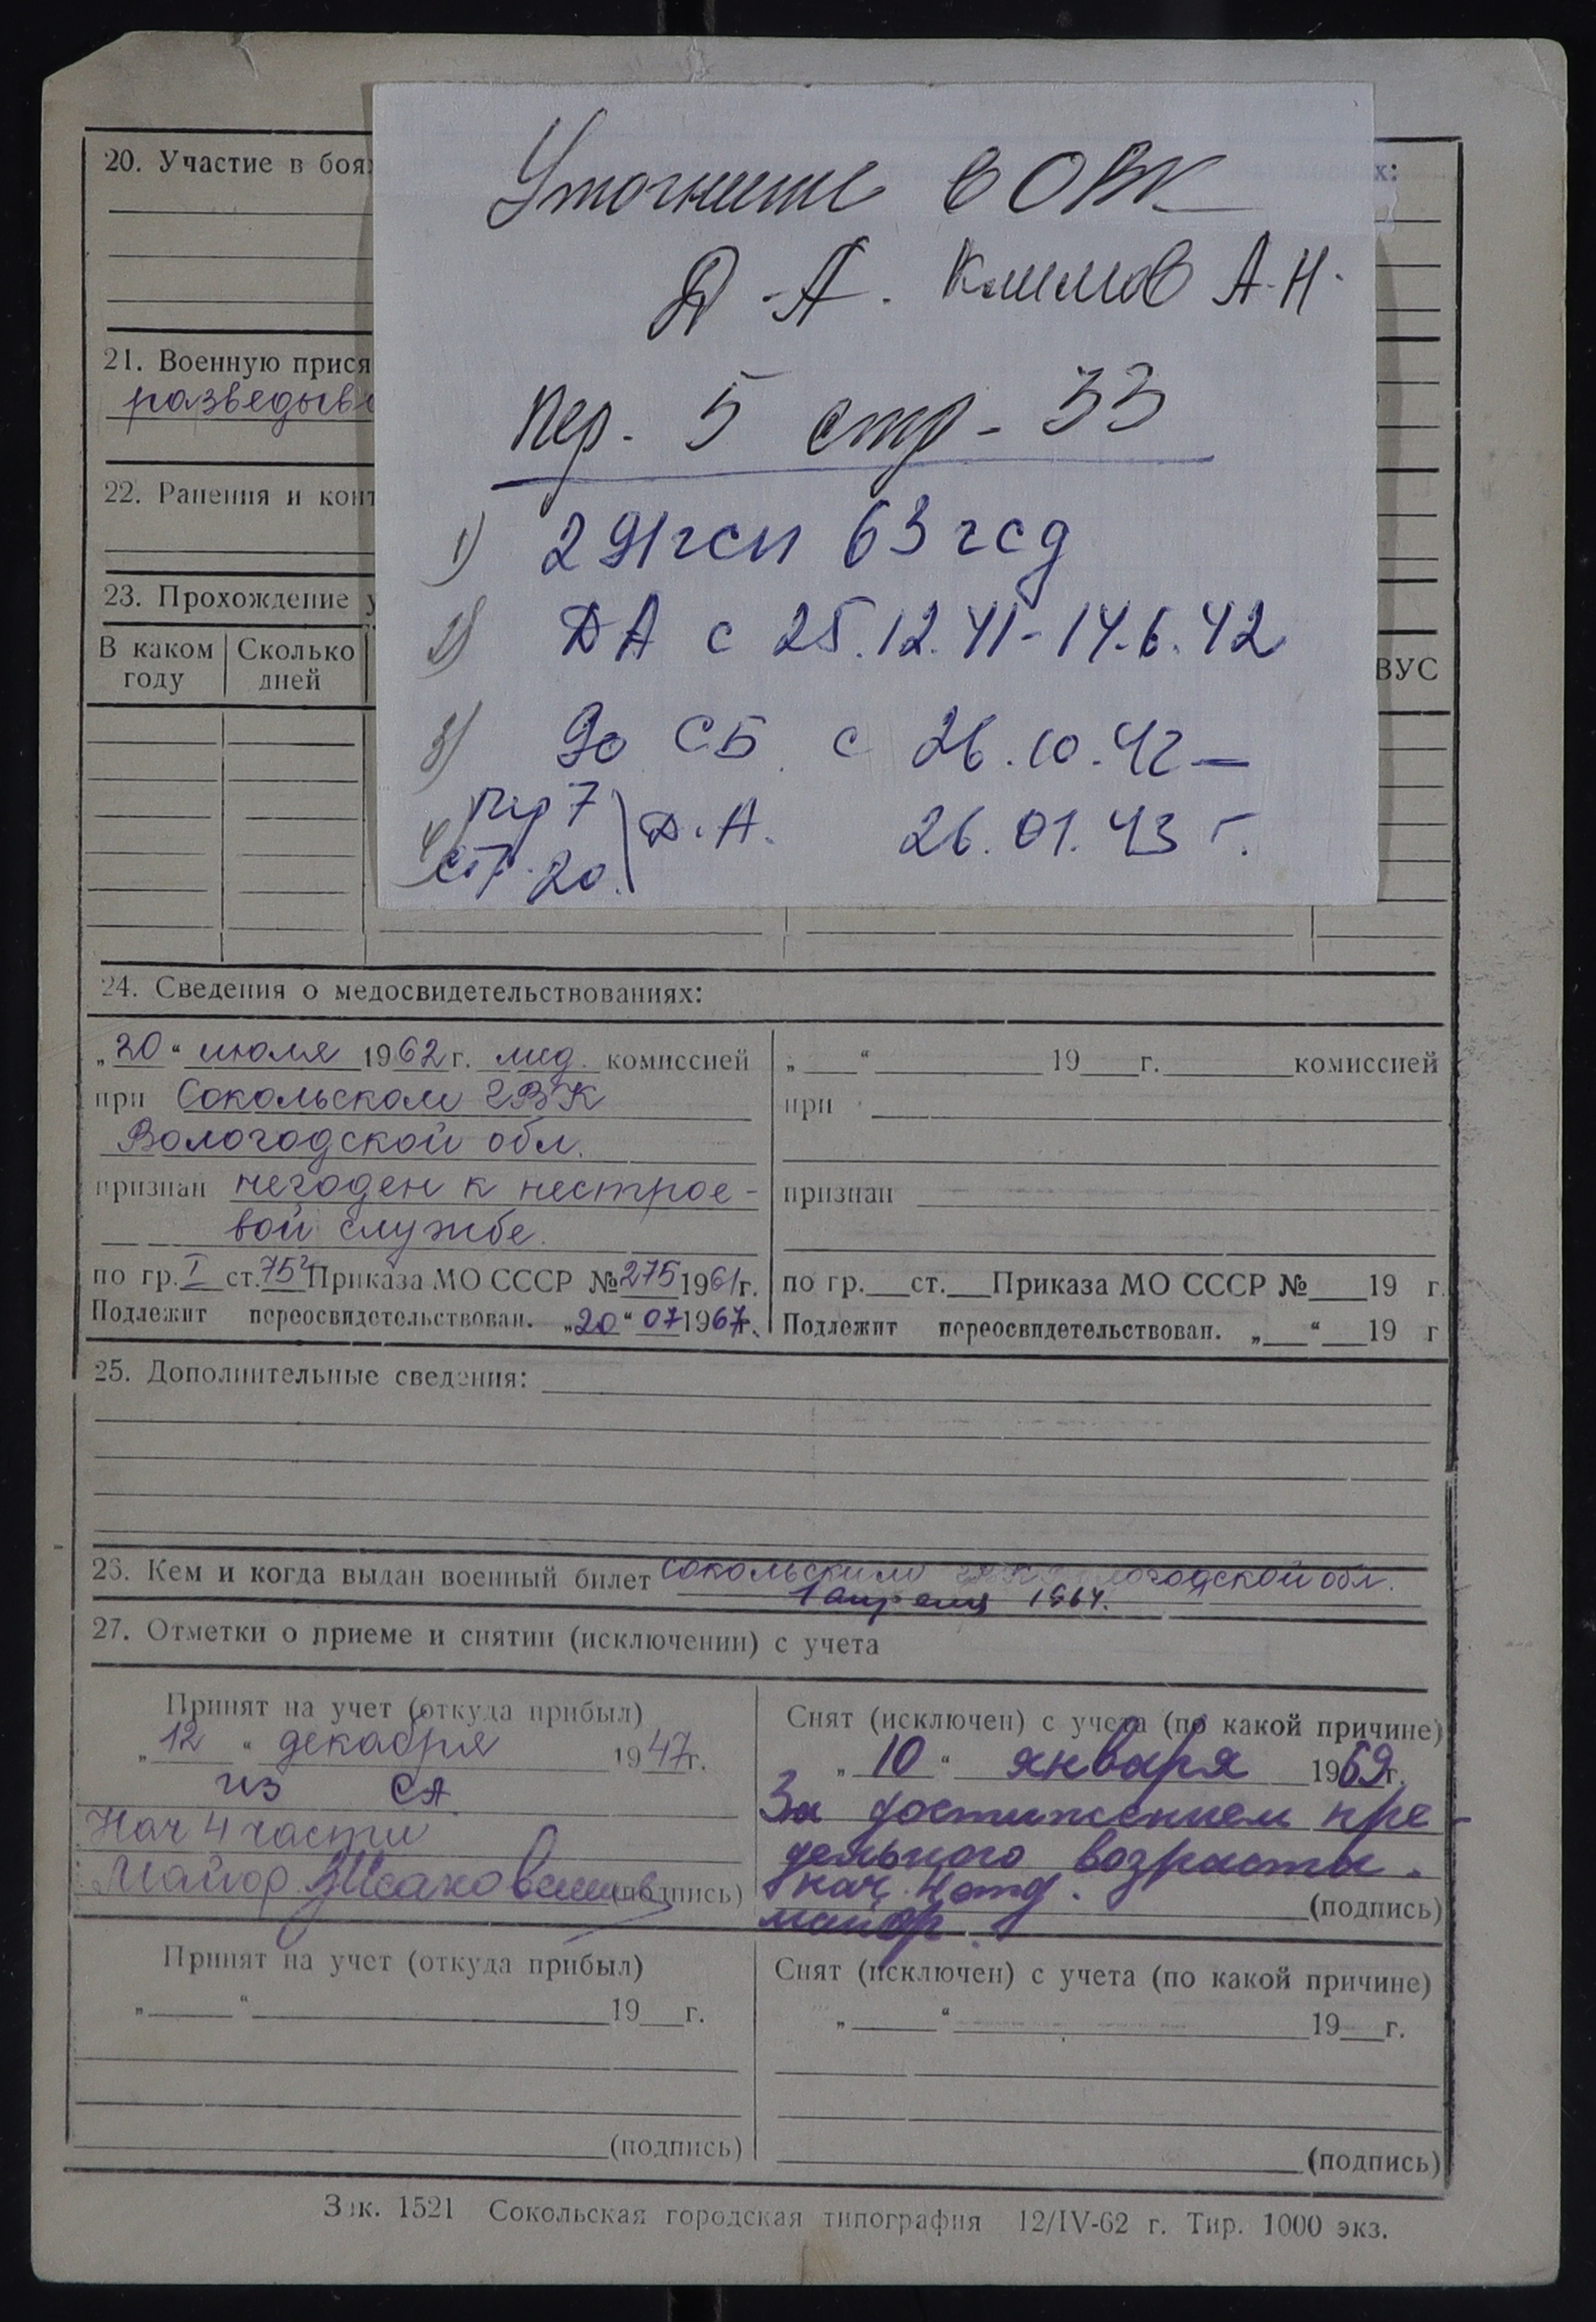 Уточните в ОВК
Д-А. Климов А-Н.
пер. 5 стр - 33
1) 291гсп 63 гсд
2) ДА с 25.12.41-14.6.42
3) 90 СБ с 26.10.42 —
26.01.43 г.
4) пер 7
ст. 20. Д.А.
20. Участие в боях:
21. Военную прися
разведыв
22. Ранения и конт
23. Прохождение у
В каком году Сколько дней ВУС
24. Сведения о медосвидетельствованиях:
„20“ июля 1962 г. мед. комиссией
при Сокольском ГВК
Вологодской обл.
признан негоден к нестрое-
вой службе.
по гр. I ст. 75² Приказа МО СССР № 275 1961г.
Подлежит переосвидетельствован. „20“ 07 1967г.
„ “ 19 г. комиссией
при
признан
по гр. ст. Приказа МО СССР № 19 г.
Подлежит переосвидетельствован. „ “ 19 г
25. Дополнительные сведения:
26. Кем и когда выдан военный билет Сокольским ГВК Вологодской обл.
1 апреля 1964.
27. Отметки о приеме и снятии (исключении) с учета
Принят на учет (откуда прибыл)
„12“ декабря 1947г.
из СА
Нач 4 части
Майор (подпись)
Снят (исключен) с учета (по какой причине)
„10“ января 1969г.
За достижением пре-
дельного возраста.
Нач. 4 отд.
майор. (подпись)
Принят на учет (откуда прибыл)
„ “ 19 г.
(подпись)
Снят (исключен) с учета (по какой причине)
„ “ 19 г.
(подпись)
Зак. 1521 Сокольская городская типография 12/IV-62 г. Тир. 1000 экз.